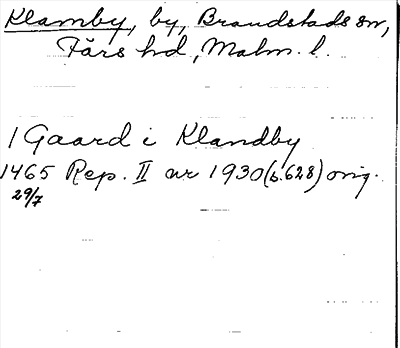 Klamby, by, Brandstads sn,
Färs hd, Malm. l.
1 Gaard i Klandby
1465 Rep. II nr 1930 (s. 628) orig.
29/7